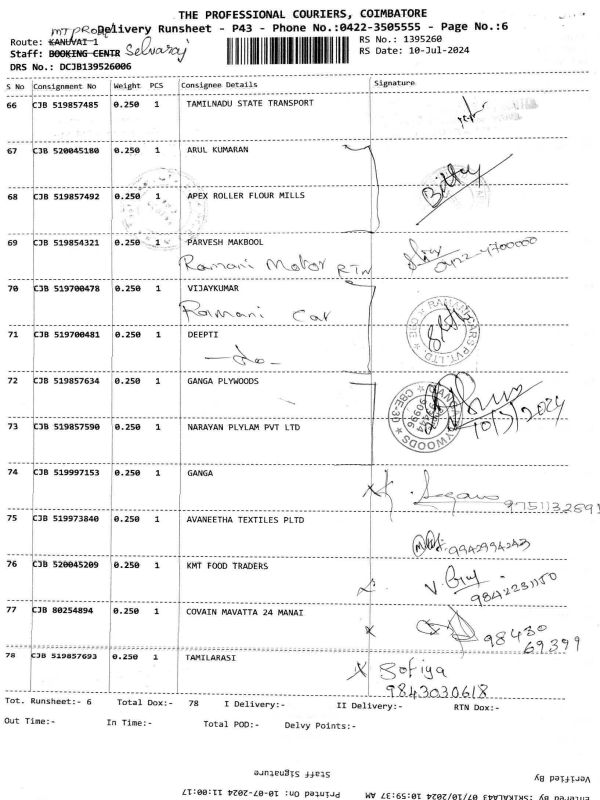 THE PROFESSIONAL COURIERS, COIMBATORE
Delivery Runsheet - P43 - Phone No.:0422-3505555 - Page No.:6
Route: KANUVAI 1
RS No.: 1395260
Staff: BOOKING CENTR Selvaraj
RS Date: 10-Jul-2024
DRS No.: DCJB139526006
S No Consignment No Weight PCS Consignee Details Signature
66 CJB 519857485 0.250 1 TAMILNADU STATE TRANSPORT
67 CJB 520045180 0.250 1 ARUL KUMARAN
68 CJB 519857492 0.250 1 APEX ROLLER FLOUR MILLS
69 CJB 519854321 0.250 1 PARVESH MAKBOOL
Ramani Motor RTN
70 CJB 519700478 0.250 1 VIJAYKUMAR
Ramani Car
71 CJB 519700481 0.250 1 DEEPTI
72 CJB 519857634 0.250 1 GANGA PLYWOODS
73 CJB 519857590 0.250 1 NARAYAN PLYLAM PVT LTD
74 CJB 519997153 0.250 1 GANGA
75 CJB 519973840 0.250 1 AVANEETHA TEXTILES PLTD
9942994243
76 CJB 520045209 0.250 1 KMT FOOD TRADERS
9842231150
77 CJB 80254894 0.250 1 COVAIN MAVATTA 24 MANAI
98430
69399
78 CJB 519857693 0.250 1 TAMILARASI
Sofiya
9843030618
Tot. Runsheet:- 6 Total Dox:- 78 I Delivery:- II Delivery:- RTN Dox:-
Out Time:- In Time:- Total POD:- Delvy Points:-
Staff Signature
Verified By
Printed On: 10-07-2024 11:00:17
Entered By :SRIKALA43 07/10/2024 10:59:37 AM